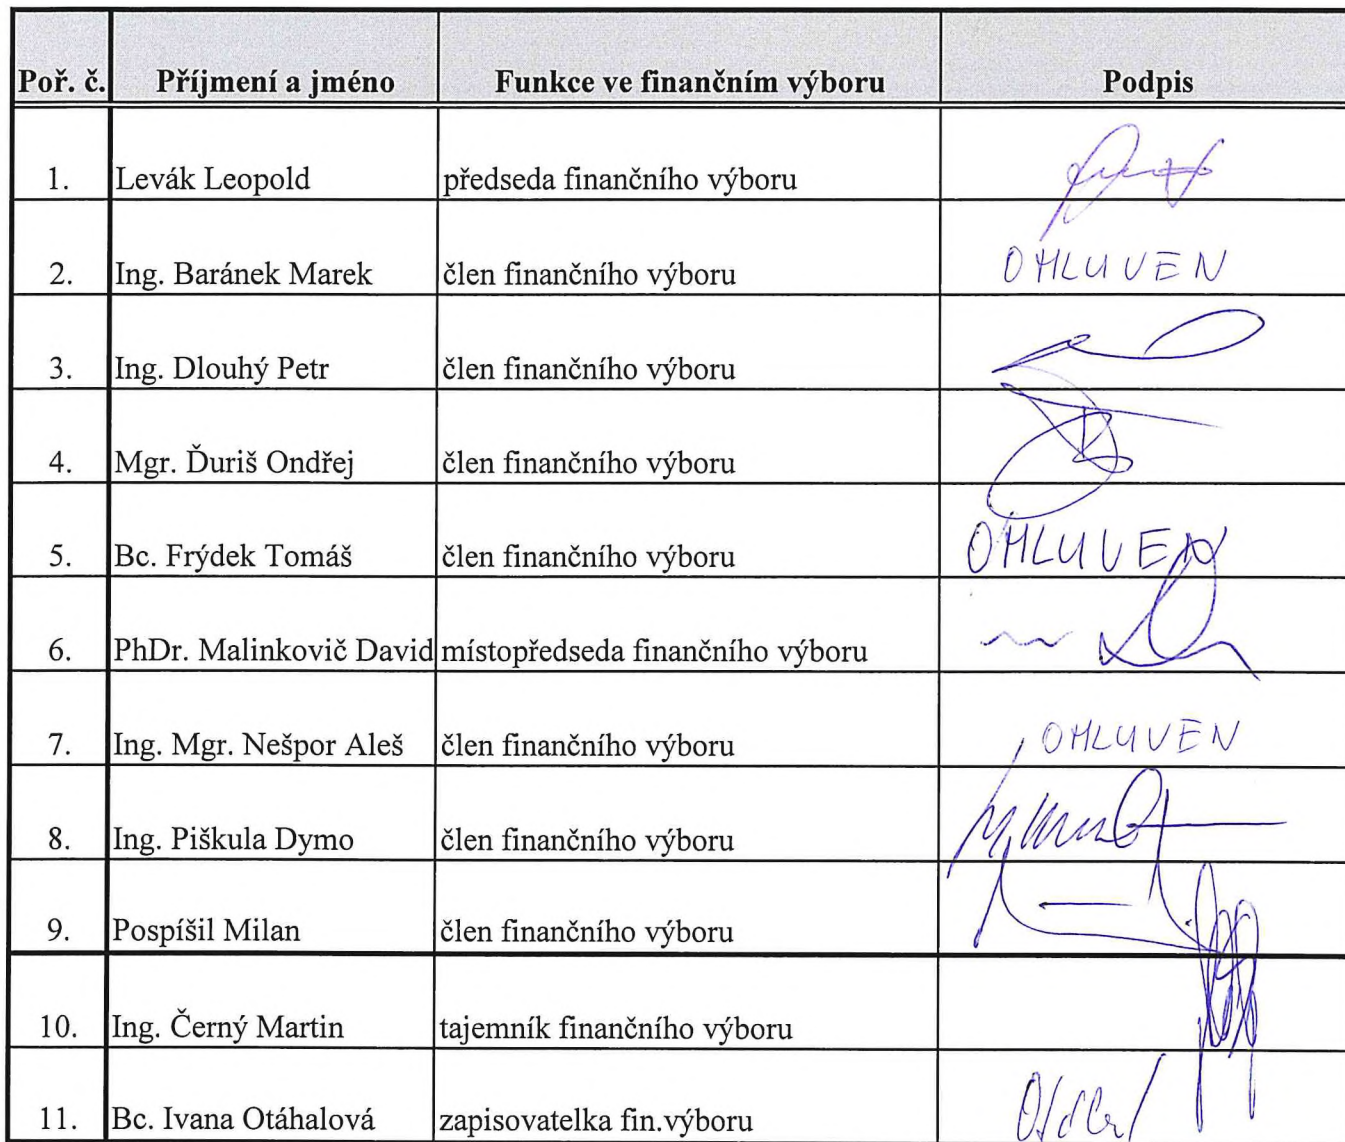 Poř. č. Příjmení a jméno Funkce ve finančním výboru Podpis
1. Levák Leopold předseda finančního výboru
2. Ing. Baránek Marek člen finančního výboru OMLUVEN
3. Ing. Dlouhý Petr člen finančního výboru
4. Mgr. Ďuriš Ondřej člen finančního výboru
5. Bc. Frýdek Tomáš člen finančního výboru OMLUVEN
6. PhDr. Malinkovič David místopředseda finančního výboru
7. Ing. Mgr. Nešpor Aleš člen finančního výboru OMLUVEN
8. Ing. Piškula Dymo člen finančního výboru
9. Pospíšil Milan člen finančního výboru
10. Ing. Černý Martin tajemník finančního výboru
11. Bc. Ivana Otáhalová zapisovatelka fin.výboru